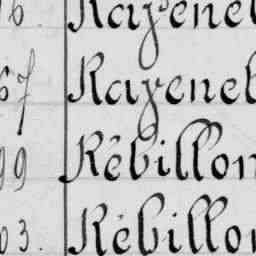 6 Rayenel
57 Rayenel
99 Rébillon
03. Rébillon